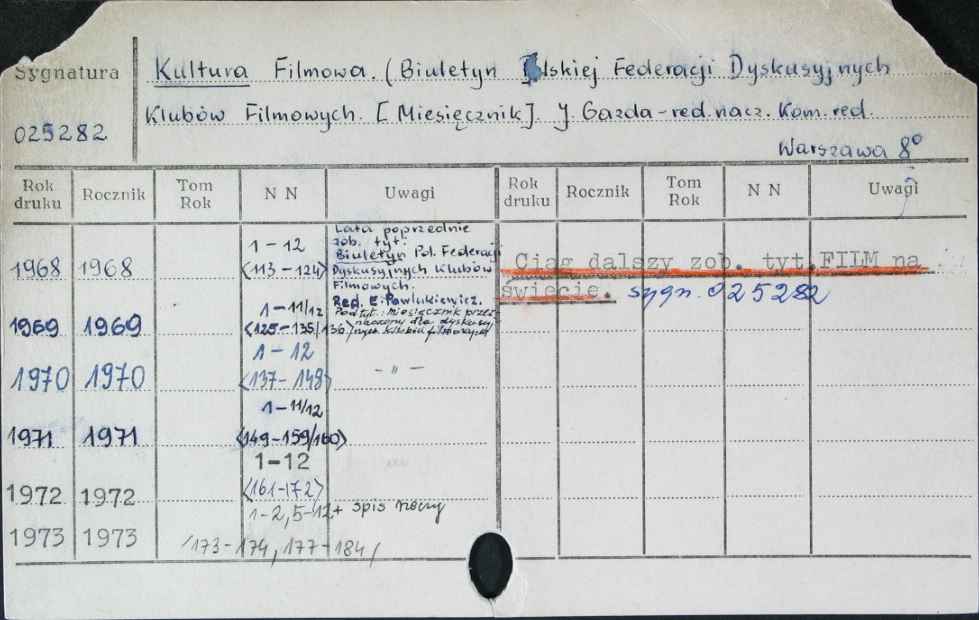 Sygnatura
025282
Kultura Filmowa. (Biuletyn Polskiej Federacji Dyskusyjnych
Klubów Filmowych. [Miesięcznik]. J. Gazda-red.nacz. Kom.red.
Warszawa 8°
Rok druku Rocznik Tom Rok N N Uwagi Rok druku Rocznik Tom Rok N N Uwagi
1968 1968 1-12
<113-124>
Lata poprzednie
zob. tyt:
Biuletyn Pol. Federacji
Dyskusyjnych Klubów
Filmowych.
Red. E. Pawlukiewicz.
1969 1969 1-11/12
<125-135/136>
Podtyt.: Miesięcznik przez-
naczony dla dyskusyj-
nych klubów filmowych
1970 1970 1-12
<137-148>
- " -
1971 1971 1-11/12
<149-159/160>
1972 1972 1-12
<161-172>
1973 1973 1-2, 5-12+ spis rzeczy
/173-174, 177-184/
Ciąg dalszy zob. tyt. FILM na
świecie. sygn. 025282